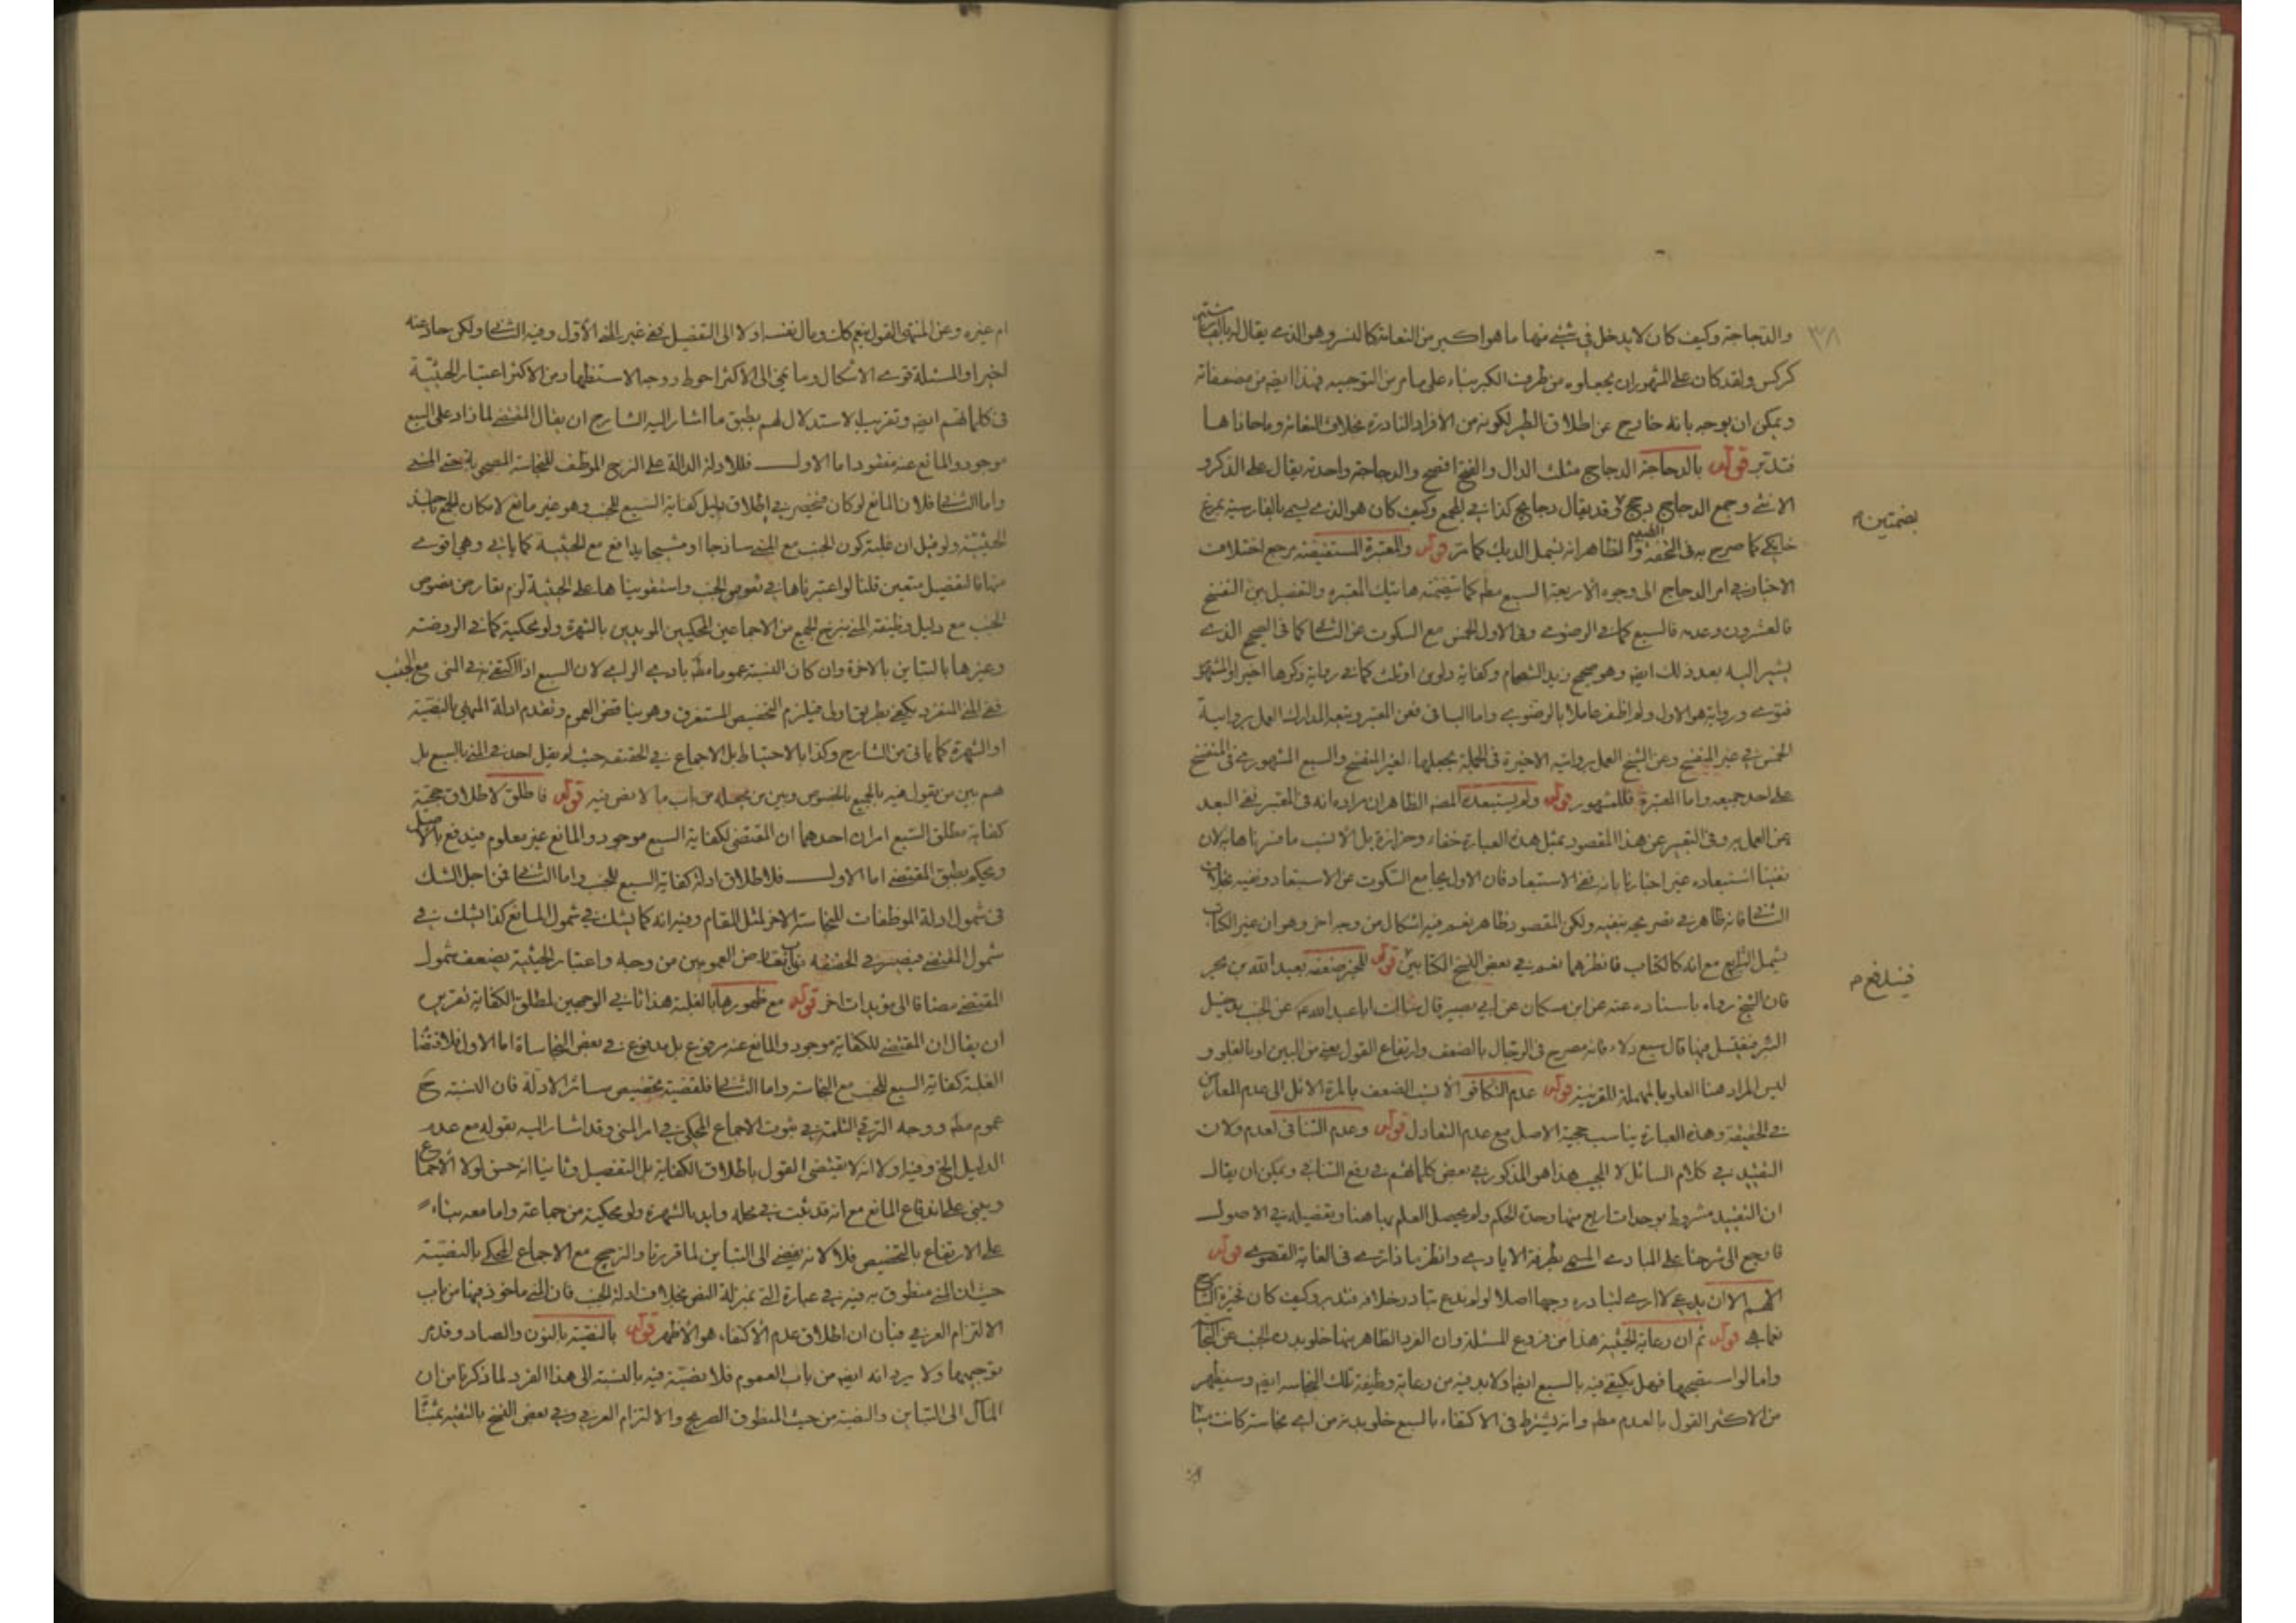 والدجاجة وكيف كان لا يدخل في شئ منها ما هو اكبر من النعامة كالنسر وهو الذي يقال له بالفارسية
كركس ولقد كان على المشهور ان يجعلوه من طرف الكبر بناء على ما مر من التوجيه فهذا ايض من مضعفاته
ويمكن ان يوجه بانه خارج عن اطلاق الطير لكونه من الأفراد النادرة بخلاف النعامة وما حاذاها
فتدبر قوله بالدجاجة الدجاج مثلث الدال والفتح افصح والدجاجة واحدته يقال على الذكر و
الانثى وجمع الدجاج دجج وقد يقال دجايج كذا في المجمع وكيف كان هو الذي يسمى بالفارسية بمرغ
بضمتين م
خانگي كما صرح به في التحفة والظاهر انه يشمل الديك كما مر قوله والمعتبرة المستفيضة مرجع اختلاف
الاخبار في امر الدجاج الى وجوه الأربعة السبع مطم كما تضمنته هاتيك المعتبره والتفصيل بين التفسخ
فالعشرون وعدمه فالسبع كما في الرضوي وفي الاول الخمس مع السكوت عن الثاني كما في الصحيح الذي
يشير اليه بعد ذلك ايض وهو صحيح زيد الشحام وكفاية دلوين او ثلث كما في رواية ذكرها اخيرا والمشهور
فتوى ورواية هو الاول ولم اظفر عاملا بالرضوي واما الباقي فعن المعتبر ويتبعه المدارك العمل برواية
الخمس في غير المتفسخ وعن الشيخ العمل بروايته الاخيرة في الجملة بجعلها لغير المتفسخ والسبع المشهورة في المتفسخ
على احد جمعيه واما المعتبرة فللمشهور قوله ولم يستبعده المصه الظاهر ان مراده انه في المعتبر نفى البعد
عن العمل به وفي التعبير عن هذا المقصود بمثل هذه العبارة خفاء وحزازة بل الأنسب ما فسرناها به لان
نفينا استبعاده غير اخبارنا بانه نفى الاستبعاد فان الاول يجامع السكوت عن الاستبعاد ونفيه بخلاف
الثاني فانه ظاهر في تصريحه بنفيه ولكن المقصود ظاهر نعم فيه اشكال من وجه اخر وهو ان غير الكتاب
يشمل الشرايع مع انه كالكتاب فانظرهما نعم في بعض النسخ الكتابين قوله للخبر ضعفه بعبد الله بن بحر
فان الشيخ رواه باسناده عنه عن ابن مسكان عن ابي بصير قال سالت ابا عبد الله ع عن الجنب يدخل
فيندفع م
البئر فيغتسل فيها قال سبع دلاء فانه مصرح في الرجال بالضعف وارتفاع القول يعني من البين او بالغلو و
ليس المراد هنا العلو بالمهملة للقرينة قوله عدم التكافؤ الأنسب الضعف بالمرة الائل الى عدم المعارض
في الحقيقة وهذه العبارة يناسب حجية الاصل مع عدم التعادل قوله وعدم التنافي لعدم ولان
التقييد في كلام السائل لا المجيب هذا هو المذكور في بعض كلماتهم في دفع التنافي ويمكن ان يقال
ان التقييد مشروط بوحدات اربع منها وحدة الحكم ولم يحصل العلم بها هنا وتفصيله في الاصول
فارجع الى شرحنا على المبادي المسمى بطرفة الايادي وانظر ماذا ترى في الغاية القصوى قوله
اللهم الا ان يدعى لا ارى لتبادره وجها اصلا لو لم ندع تبادر خلافه فتدبر وكيف كان فخيرة الشارح
نعما هي قوله ثم ان رعاية الحيثية هذا من فروع المسئلة وان الفرد الظاهر منها خلو بدن الجنب عن النجاسة
واما لو استصحبها فهل يكتفى فيه بالسبع ايضا او لا بد فيه من رعاية وظيفة تلك النجاسه ايض وسيظهر
من الاكثر القول بالعدم مطم وانه يشترط في الاكتفاء بالسبع خلو بدنه من اي نجاسة كانت منيا
ام غيره وعن المنتهى القول بنعم كك ومال نفسه اولا الى التفصيل ففي غير المني الأول وفيه الثاني ولكن حاد عنه
اخيرا والمسئلة قوي الاشكال وما نمي الى الأكثر احوط ووجه الاستظهار من الاكثر اعتبار الحيثية
في كلماتهم ايض وتقريب الاستدلال لهم يطبق ما اشار اليه الشارح ان يقال المقتضي لما زاد على السبع
موجود والمانع عنه مفقود اما الاول فللادلة الدالة على النزح الموظف للنجاسة المصحوبة حتى المني
واما الثاني فلان المانع لو كان فنحصر في اطلاق دليل كفاية السبع للجنب وهو غير مانع لامكان الجمع باخذ
الحيثية ولو قيل ان غلبة كون الجنب مع المني ساذجا او مشيجا يدافع مع الحيثية كما يأتي وهي اقوى
منها فالتفصيل متعين قلنا لو اعتبرناها في نصوص الجنب واستقويناها على الحيثية لزم تعارض نصوص
الجنب مع دليل وظيفة المني بترجيح الجمع من الاجماعين المحكيين المويدين بالشهرة ولو محكية كما في الروضة
وغيرها بالتباين بالاخرة وان كان النسبة عموما مطم بادي الراي لان السبع اذا اكتفى في المني مع الجنب
ففي المني المنفرد يكتفي بطريق اولى فيلزم التخصيص المستغرق وهو ينافي نص العموم وتقدم ادلة المني بالنصية
او الشهرة كما ياتي من الشارح وكذا بالاحتياط بل الاجماع في الحقيقة حيث لم يقل احد في المني بالسبع بل
هم بين من يقول فيه بالجميع بالخصوص وبين من يجعله من باب ما لا نص فيه قوله فاطلق لاطلاق حجية
كفاية مطلق السبع امران احدهما ان المقتضى لكفاية السبع موجود والمانع غير معلوم فيندفع بالاصل
ويحكم بطبق المقتضي اما الاول فلاطلاق ادلة كفاية السبع للجنب واما الثاني فمن اجل الشك
في شمول ادلة الموظفات للنجاسة الاخر لمثل المقام وفيه انه كما يشك في شمول المانع كذا يشك في
شمول المقتضي فيصير في الحقيقة من باب تعارض العمومين من وجه واعتبار الحيثية يضعف شمول
المقتضي مضافا الى مؤيدات اخر قوله مع ظهورها بالغلبة هذا ثاني الوجهين لمطلق الكفاية تقريره
ان يقال ان المقتضي للكفاية موجود والمانع عنه مرفوع بل مدفوع في بعض النجاساة اما الاول فلاقتضاء
الغلبة كفاية السبع للجنب مع النجاسة واما الثاني فلقضية تخصيص سائر الادلة فان النسبة ح
عموم مطم ووجه الترقي الثلمة في ثبوت الاجماع المحكي في امر المني وقد اشار اليه بقوله مع عدم
الدليل الخ وفيه اولا انه لا يقتضى القول باطلاق الكفاية بل التفصيل وثانيا انه حسن لولا الأجماع
ويبني على اندفاع المانع مع انه قد ثبت في محله وايد بالشهرة ولو محكية من جماعة واما معه بناء
على الارتفاع بالتخصيص فلا لانه يفضي الى التباين لما قررنا والترجيح مع الاجماع المحكي بالنصية
حيث ان المني منطوق به فيه في عبارة التي بمنزلة النص بخلاف ادلة الجنب فان المني ماخوذ فيها من باب
الالتزام العرفي فبان ان اطلاق عدم الأكتفاء هو الأظهر قوله بالنصية بالنون والصاد وقد مر
توجيهها ولا يرد انه ايض من باب العموم فلا نصية فيه بالنسبة الى هذا الفرد لما ذكرنا من ان
المآل الى التباين والنصية من حيث المنطوق الصريح والالتزام العرفي وفي بعض النسخ بالتقية